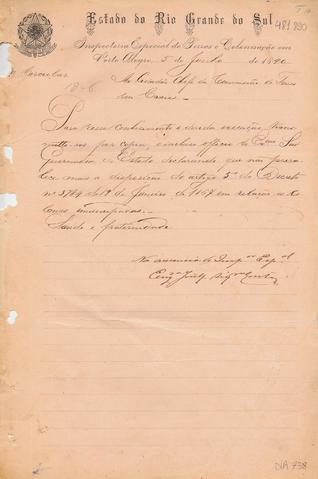 Estado do Rio Grande do Sul
481.890
Inspectoria Especial de Terras e Colonisação em
Porto Alegre, 5 de Junho de 1890
Circular
18-6
Ao Cidadão Chefe da Commissão de Terras
dem Caxias
Para vosso conhecimento e devida execução trans
mitto-vos por copia, o incluso officio do Exmo Snr
Governador do Estado declarando que não preva
lece mais a disposição do artigo 3º do Decreto
nº 3784 de 19 de Janeiro de 1867 em relação ás Co
lonias emancipadas.
Saude e fraternidade
Na ausencia do Insp.or Esp.al
Eng.o
DIA 738